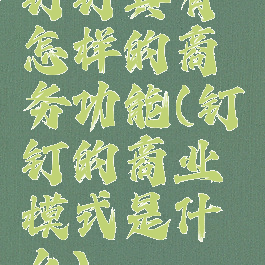 钉钉具有
怎样的商
务功能(钉
钉的商业
模式是什
么)